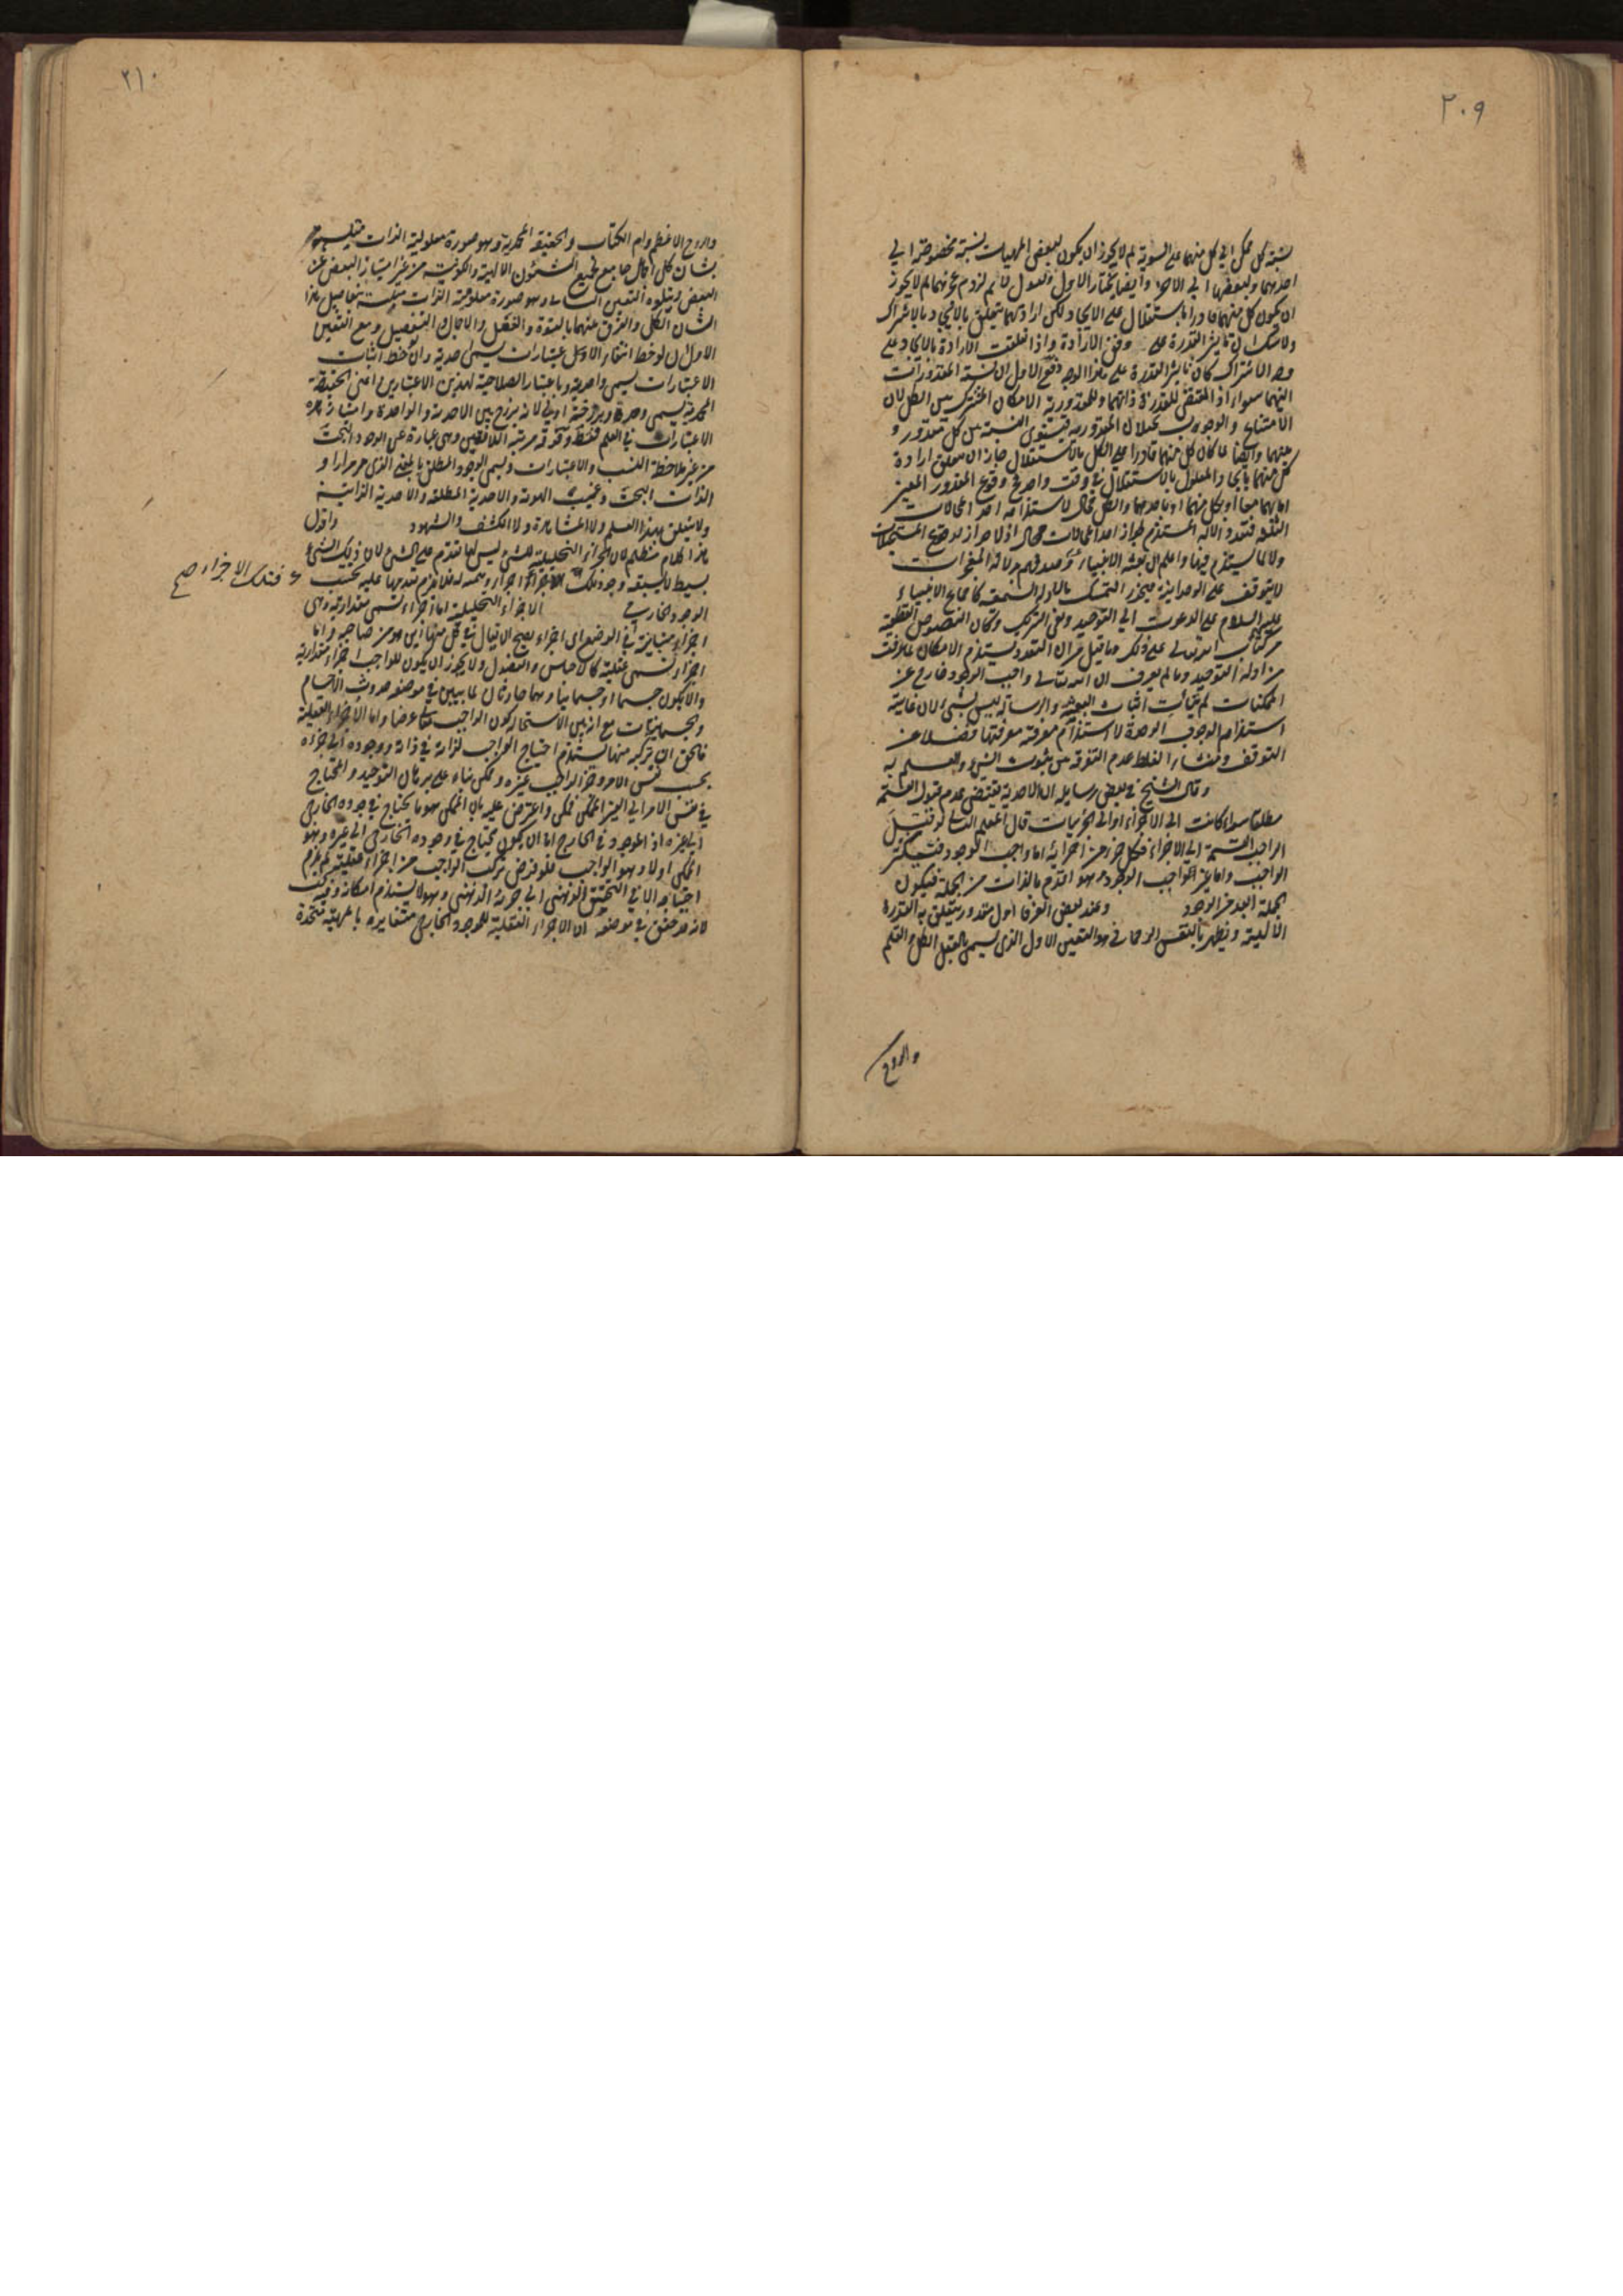 ٢٠٩
نسبة كل ممكن الى كل منهما على السوية لم لا يجوز ان يكون لبعض المهيات نسبة مخصوصة الى
احدهما ولبعضها الى الاخر وايضا نختار الاول ونقول لا نم لزوم عجزهما لم لا يجوز
ان يكون كل منهما قادرا بالاستقلال على الايجاد لكن ارادتهما تتعلق بالايجاد بالاشتراك
ولا شك ان تاثير القدرة على وفق الارادة واذا تعلقت الارادة بالايجاد على
وجه الاشتراك كان تاثير القدرة على هذا الوجه دفع الاول ان نسبة المقدورات
اليهما سواء اذ المقتضى للقدرة ذاتهما وللمقدورية الامكان المشترك بين الكل لان
الامتناع والوجوب يحيلان المقدورية فيستوى النسبة بين كل مقدور و
بينهما وايضا لما كان كل منهما قادرا على الكل بالاستقلال جاز ان يتعلق ارادة
كل منهما بايجاد المعلول بالاستقلال في وقت واحد و وقوع المقدور المعين
اما بهما معا او بكل منهما او باحدهما والكل محال لاستلزامه احد المحالات
الثلثة فتعدد الاله المستلزم لجواز احد المحالات محال اذ لا جواز لوقوع المستحيلات
ولا لما يستلزم فيها واعلم ان بعثة الانبياء وصدقهم بدلالة المعجزات
لا يتوقف على الوحدانية فيجوز التمسك بالادلة السمعية كاجماع الانبياء
عليهم السلام على الدعوت الى التوحيد ونفى الشريك وكان النصوص القطعية
من كتاب الله تعالى على ذلك وما قيل من ان التعدد يستلزم الامكان لما عرفت
من ادلة التوحيد وما لم يعرف ان الله تعالى واجب الوجود خارج عن
الممكنات لم يتات اثبات البعثة والرسالة ليس بشئ لان غايته
استلزام الوجوب الوحدة لا استلزام معرفته معرفتها فضلا عن
التوقف ومنشاء الغلط عدم التفرقة بين ثبوت الشئ والعلم به
وقال الشيخ في بعض رسايله ان الاحدية تقتضي عدم قبول القسمة
مطلقا سواء كانت الى الاجزاء او الى الجزئيات قال المعلم الثاني لو قبل
الواجب القسمة الى الاجزاء فكل جزء من اجزائه اما واجب الوجود فيتكثر
الواجب واما غير الواجب الوجود وهو اقدم بالذات من الجملة فيكون
الجملة ابعد من الوجود وعند بعض العرفا اول مقدور يتعلق به القدرة
الالهية ويظهر بالنفس الرحماني هو التعين الاول الذي يسمى بالعقل الكل والقلم
والروح
٢١٠
والروح الاعظم وام الكتاب والحقيقة المحمدية وهو صورة معلومية الذات متلبسة
بشان كلى اجمالي جامع لجميع الشئون الالهية والكونية من غير امتياز البعض عن
البعض ويتلوه التعين الثاني وهو صورة معلومية الذات متلبسة بتفاصيل هذا
الشان الكلى والفرق بينهما بالقوة والفعل والاجمال والتفصيل ومع التعين
الاول ان لوحظ انتفاء الاول الاعتبارات يسمى احدية وان لوحظ اثبات
الاعتبارات يسمى واحدية وباعتبار الصلاحية لهذين الاعتبارين اعنى الحقيقة
المحمدية يسمى وحدة وبرزخية اولى لانه برزخ بين الاحدية والواحدية وامتياز هذه
الاعتبارات في العلم فقط وفوقه مرتبة اللاتعين وهي عبارة عن الوجود البحت
من غير ملاحظة النسب والاعتبارات ويسمى الوجود المطلق بالمعنى الذي مر مرارا و
الذات البحت وغيب الهوية والاحدية المطلقة والاحدية الذاتية
ولا يتعلق بهذا العلم ولا المشاهدة ولا الكشف والشهود واقول
هذا كلام منظلم لان الاجزاء التحليلية للشئ ليس لها تقدم على الشئ لان ذلك الشئ
بسيط لا يسبقه وجود تلك الاجزاء اجزاء وهمية له فلا يلزم تقديمها عليه بحسب
فتلك الاجزاء صح
الوجود الخارجي الاجزاء التحليلية اما اجزاء تسمى مقدارية وهي
اجزاء متباينة في الوضع اى اجزاء يصح ان يقال في كل منها اين هو من صاحبه واما
اجزاء تسمى عقلية كالاجناس والفصول ولا يجوز ان يكون للواجب اجزاء مقدارية
والا يكون جسما او جسمانيا وهما حادثان لما يبين في موضعه حدوث الاجسام
والجسمانيات مع انه بين الاستحالة كون الواجب تعالى عرضا واما الاجزاء العقلية
فالحق ان تركبه منها يستلزم احتياج الواجب لذاته في ذاته ووجوده الى جزءه
بحسب نفس الامر وجزء الواجب غيره وممكن بناء على برهان التوحيد والمحتاج
في نفس الامر الى الغير الممكن ممكن واعترض عليه بان الممكن هو ما يحتاج في وجوده الخارجي
الى غيره اذ الموجود في الخارج اما ان يكون محتاج في وجوده الخارجي الى غيره وهو
الممكن او لا وهو الواجب فلو فرض تركب الواجب من اجزاء عقلية لم يلزم
احتياجه الا في التحقق الذهني الى جزئه الذهني وهو لا يستلزم امكانه وفيه بحث
لانه قد حقق في موضعه ان الاجزاء العقلية للموجود الخارج متغايره بالمهية متحدة